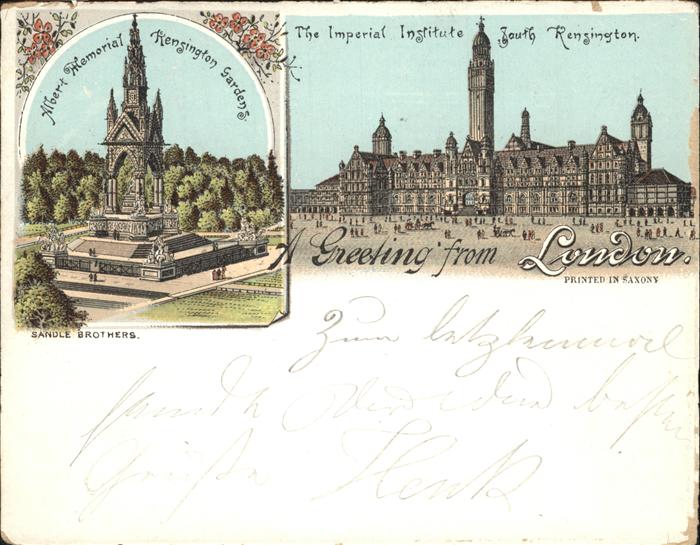 Albert Memorial Kensington Gardens.
The Imperial Institute South Kensington.
A Greeting from London.
PRINTED IN SAXONY
SANDLE BROTHERS.
Zum letztenmal
Grüße